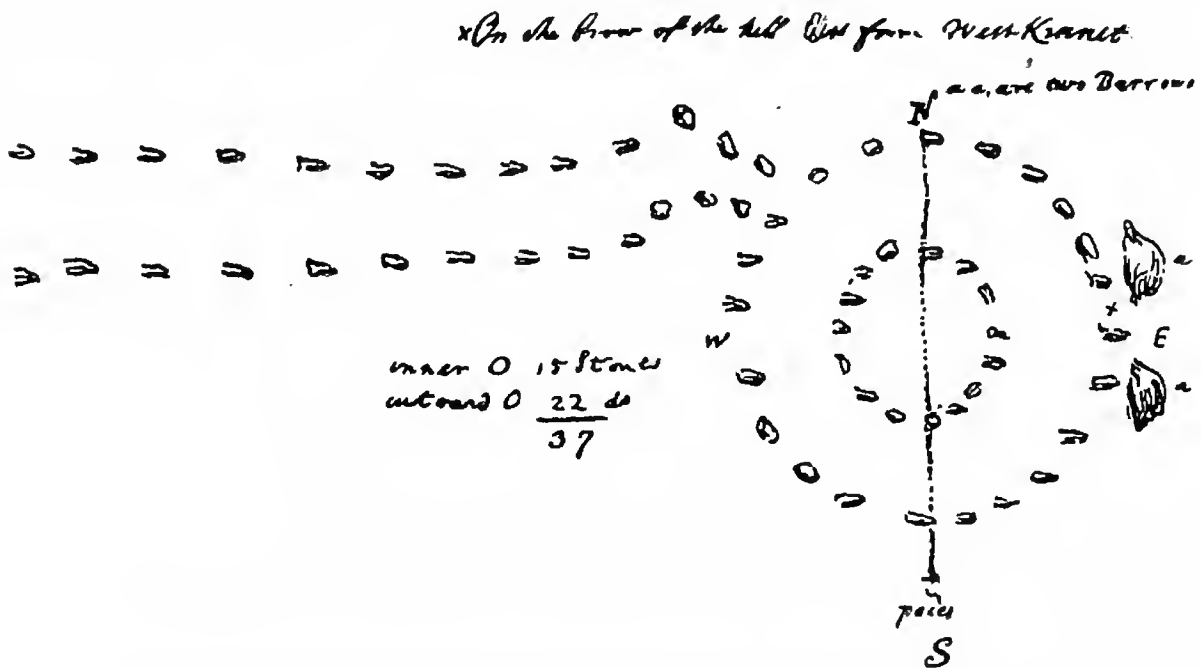 x On the brow of the hill East from West Kennet
a a, are two Barrows
N
a
x
W
E
inner O 15 Stones
a
outward O 22 do
37
paces
S